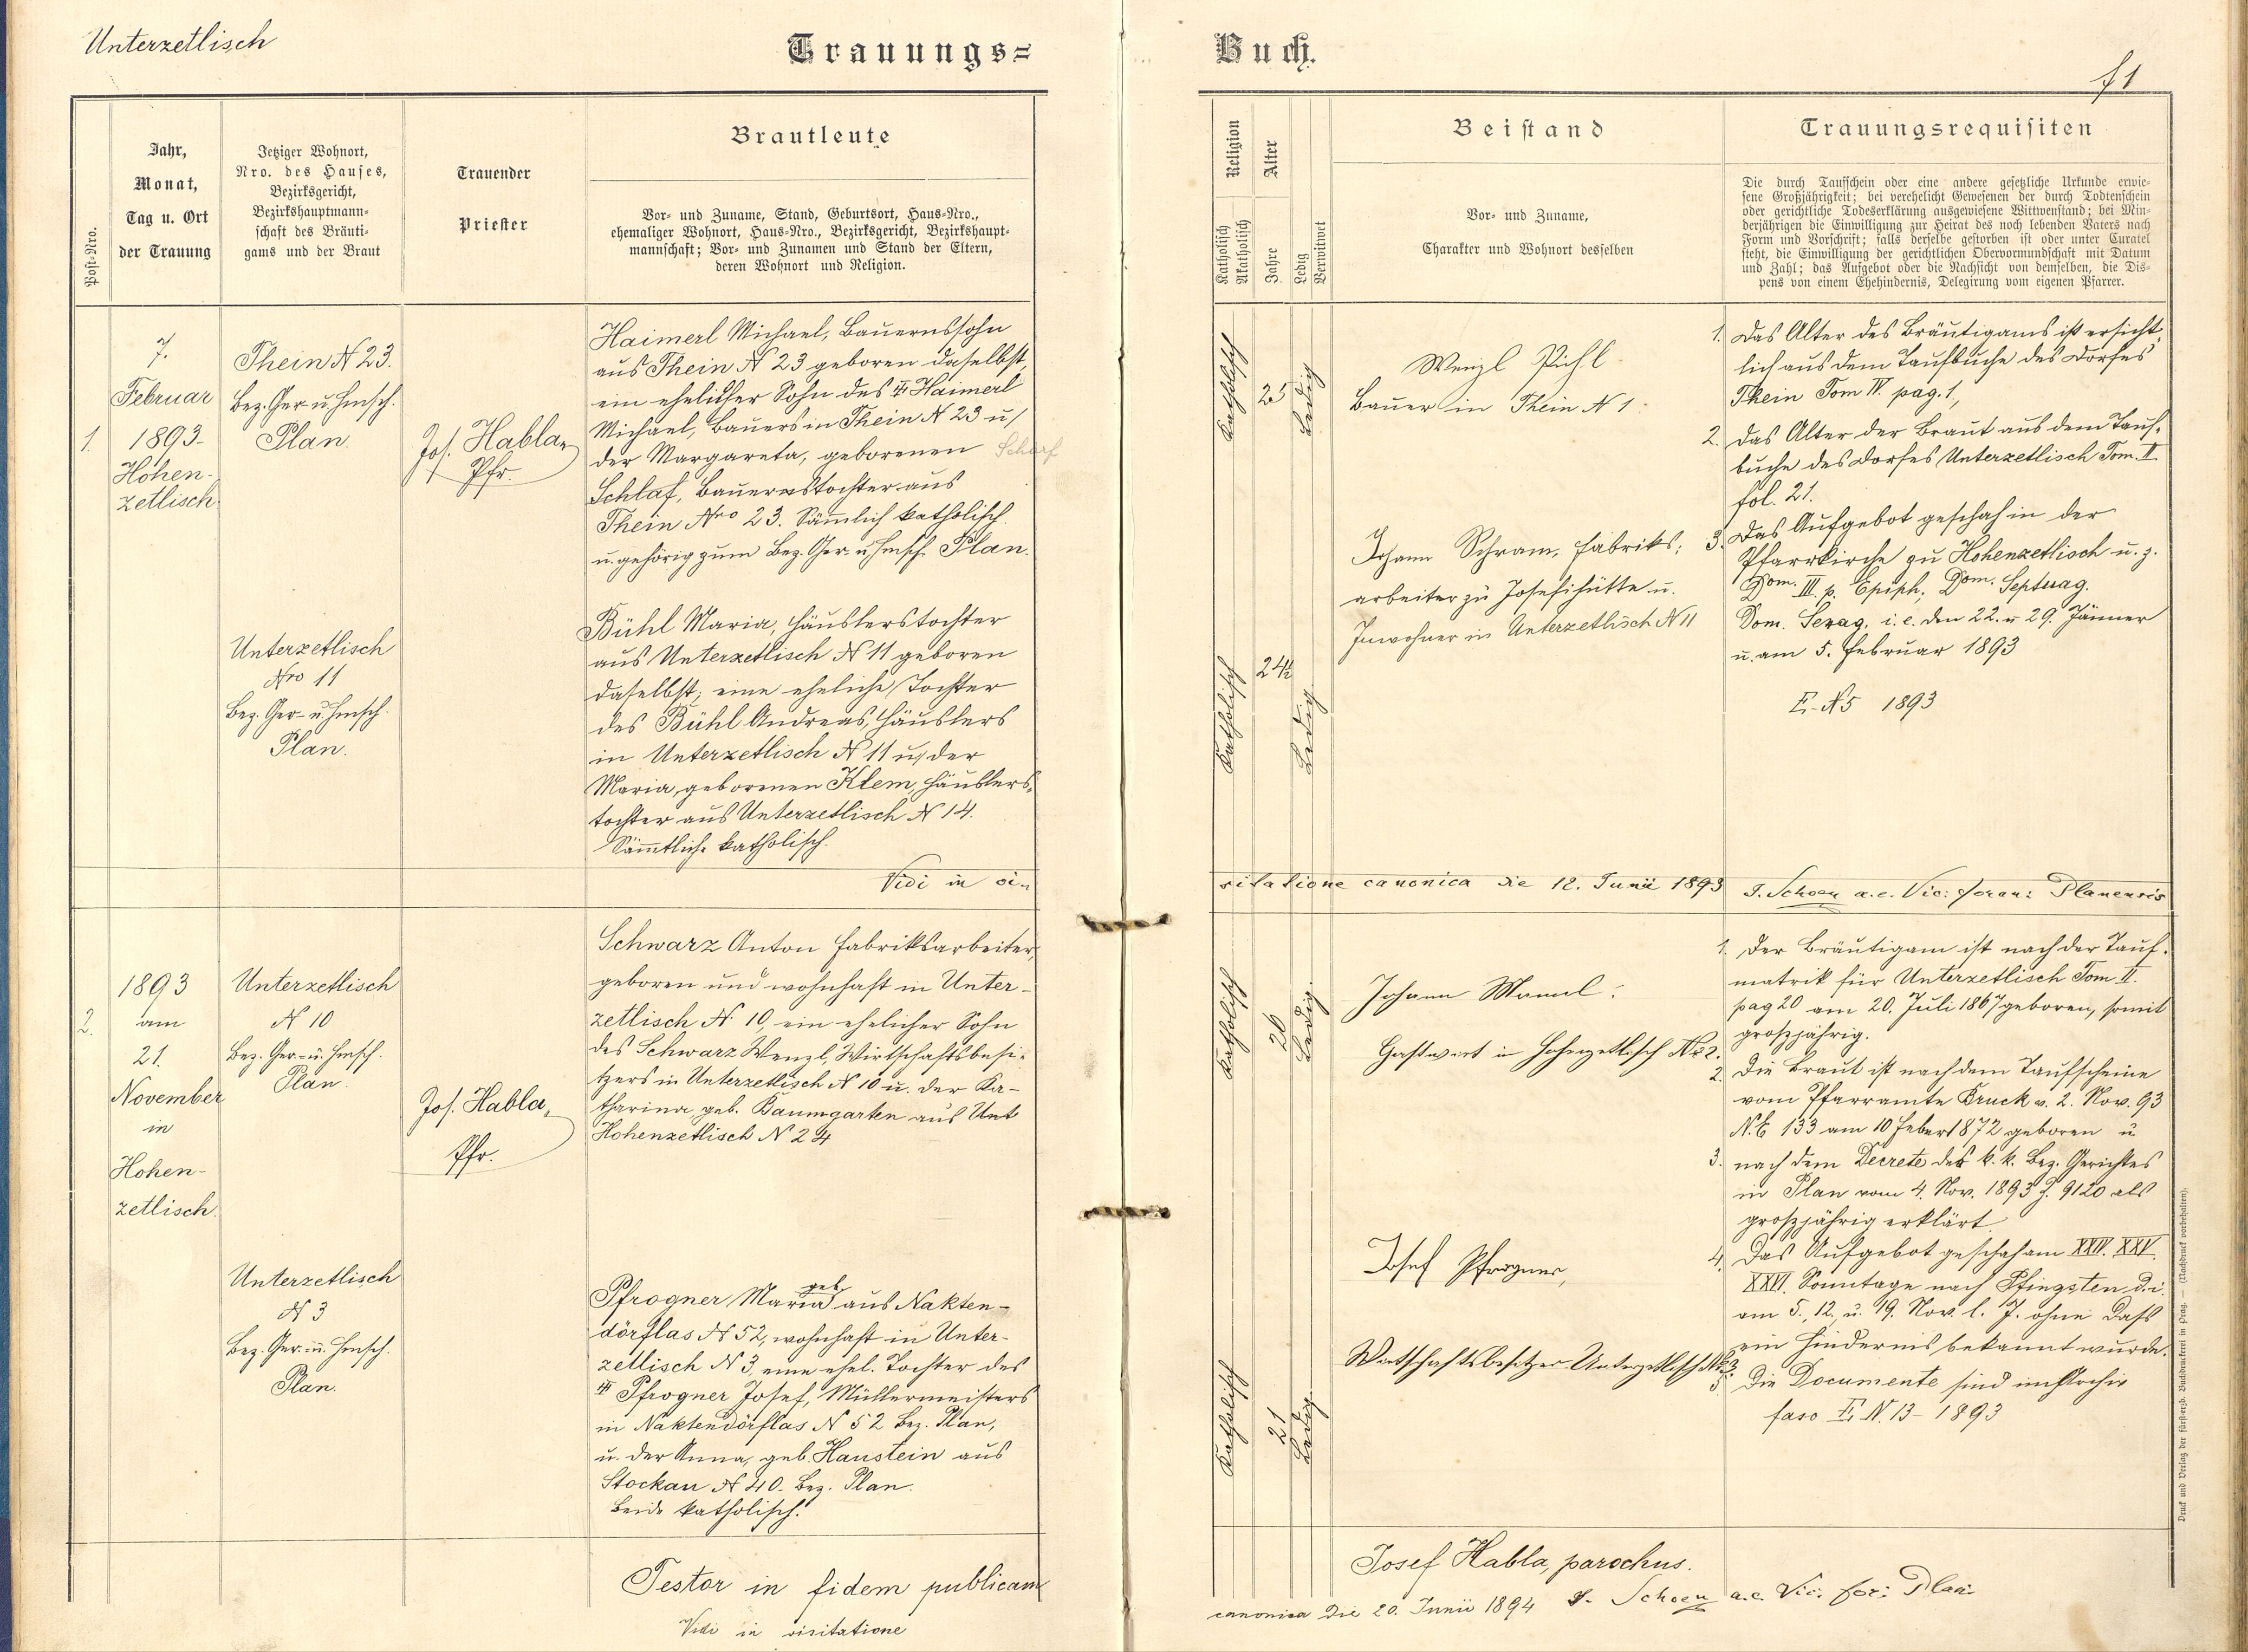 Unterzetlisch
Trauungs=
Buch.
f1
Post=Nro.
Jahr,
Monat,
Tag u. Ort
der Trauung
Jetziger Wohnort,
Nro. des Hauses,
Bezirksgericht,
Bezirkshauptmann=
schaft des Bräuti=
gams und der Braut
Trauender
Priester
Brautleute
Vor= und Zuname, Stand, Geburtsort, Haus=Nro.,
ehemaliger Wohnort, Haus=Nro., Bezirksgericht, Bezirkshaupt=
mannschaft; Vor= und Zunamen und Stand der Eltern,
deren Wohnort und Religion.
Religion
Katholisch
Akatholisch
Alter
Jahre
Ledig
Verwitwet
Beistand
Vor= und Zuname,
Charakter und Wohnort desselben
Trauungsrequisiten
Die durch Taufschein oder eine andere gesetzliche Urkunde erwie=
sene Großjährigkeit; bei verehelicht Gewesenen der durch Todtenschein
oder gerichtliche Todeserklärung ausgewiesene Wittwenstand; bei Min=
derjährigen die Einwilligung zur Heirat des noch lebenden Vaters nach
Form und Vorschrift; falls derselbe gestorben ist oder unter Curatel
steht, die Einwilligung der gerichtlichen Obervormundschaft mit Datum
und Zahl; das Aufgebot oder die Nachsicht von demselben, die Dis=
pens von einem Ehehindernis, Delegirung vom eigenen Pfarrer.
1.
7.
Februar
1893-
Hohen-
zetlisch.
Thein N 23.
Bez. Ger. u. Hmsch.
Plan.
Jos. Habla,
Pfr.
Haimerl Michael, Bauernssohn
aus Thein N 23 geboren daselbst,
ein ehelicher Sohn des Haimerl
Michael, Bauers in Thein N 23 u/
der Margareta, geborenen Scharf
Schlaf, Bauernstochter aus
Thein Nro 23. Sämlich katholisch
u. gehörig zum Bez. Ger. u. Hmsch. Plan.
Katholisch
25
Ledig
Wenzl Pichl
Bauer in Thein N 1.
1. Das Alter des Bräutigams ist ersicht-
lich aus dem Taufbuche des Dorfes
Thein Tom IV. pag. 1,
2. Das Alter der Braut aus dem Tauf-
buche des Dorfes Unterzetlisch Tom. II.
fol. 21.
3. Das Aufgebot geschah in der
Pfarrkirche zu Hohenzetlisch u. z.
Dom. III. p. Epiph; Dom. Septuag.
Dom. Sexag. i. e. den 22. u 29. Jänner
u. am 5. Februar 1893
E. N 5 1893
Unterzetlisch
Nro 11
Bez. Ger- u. Hmsch.
Plan.
Bühl Maria, Häuslerstochter
aus Unterzetlisch N 11 geboren
daselbst; eine eheliche Tochter
des Bühl Andreas, Häuslers
in Unterzetlisch N 11 u/ der
Maria, geborenen Klem, Häuslers-
tochter aus Unterzetlisch N 14.
Sämmtliche katholisch.
Katholisch
24½
Ledig
Johann Schram, Fabriks-
arbeiter zu Josefihütte u.
Inwohner in Unterzetlisch N 11
Vidi in vi-
sitatione canonica die 12. Junii 1893 J. Schoen a.e. Vic: foran: Planensis
2.
1893
am
21.
November
in
Hohen-
zetlisch.
Unterzetlisch
N 10
Bez. Ger.- u. Hmsch.
Plan.
Jos. Habla,
Pfr.
Schwarz Anton Fabriksarbeiter,
geboren und wohnhaft in Unter-
zetlisch N. 10, ein ehelicher Sohn
des Schwarz Wenzl, Wirtschaftsbesi-
tzers in Unterzetlisch N 10 u. der Ka-
tharina, geb. Baumgarten aus Unt
Hohenzetlisch N 24
Katholisch
26
Ledig.
Johann
Gastwirt in Hohenzetlisch No 2.
1. Der Bräutigam ist nach der Tauf-
matrik für Unterzetlisch Tom. II.
pag 20 am 20. Juli 1867 geboren, somit
großjährig.
2. Die Braut ist nach dem Taufscheine
vom Pfarramte Bruck v. 2. Nov. 93
N.E 133 am 10 Feber 1872 geboren u
3. nach dem Decrete des k. k. Bez. Gerichtes
in Plan vom 4. Nov. 1893 Z. 9120 als
großjährig erklärt.
4. Das Aufgebot geschah am XXIV. XXV.
XXVI. Sonntage nach Pfingsten d. i.
am 5., 12., u. 19. Nov. l. J. ohne daß
ein Hindernis bekannt wurde.
5. Die Documente sind im Archiv
fasc E, N. 13- 1893
Unterzetlisch
N 3
Bez. Ger. u. Hmsch.
Plan.
Pfrogner Maria geb. aus Nakten-
dörflas N 52, wohnhaft in Unter-
zetlisch N 3, eine ehel. Tochter des
Pfrogner Josef, Müllermeisters
in Naktendörflas N 52 Bez. Plan,
u. der Anna, geb. Haustein aus
Stockau N 40. Bez. Plan.
Beide katholisch.
Katholisch
21
Ledig
Josef Pfrogner,
Wirtschaftsbesitzer Unterzetlisch No 3.
Testor in fidem publicam
Josef Habla, parochus.
Vidi in visitatione
canonica die 20. Junii 1894 J. Schoen a.e. Vic. for: Plan:
Druck und Verlag der fürsterzb. Buchdruckerei in Prag. — (Nachdruck vorbehalten).